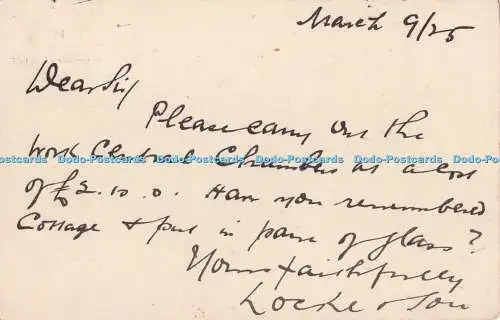 March 9/25
Dear Sir/
Please carry out the
work Central Chambers at a cost
Dodo-Postcards Dodo-Postcards Dodo-Postcards Dodo-Postcards Dodo-Postcards
of £2. 10. 0. Have you remembered
Cottage & put in pane of glass?
Yours faithfully
Locke & Son